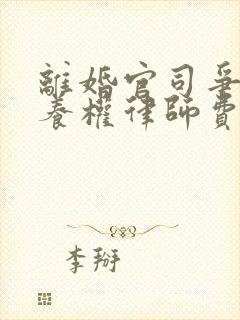 離婚官司爭
養權律師費
李掰